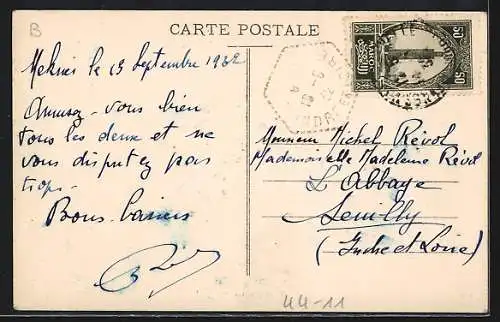 B
CARTE POSTALE
Meknès le 13 Septembre 1932
Amusez-vous bien
tous les deux et ne
vous disputez pas
trop.
Bons baisers
MAROC
50 50
INDRE ET
Monsieur Michel Révol
Mademoiselle Madeleine Révol
L'Abbaye
Semilly
(Indre et Loire)
44-11